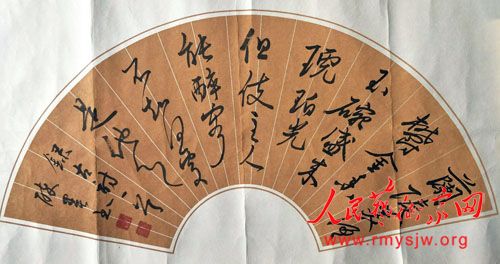 蘭陵美酒
鬱金香
玉碗盛来
琥珀光
但使主人
能醉客
不知何處
是他鄉
人民藝術家网
www.rmysjw.org